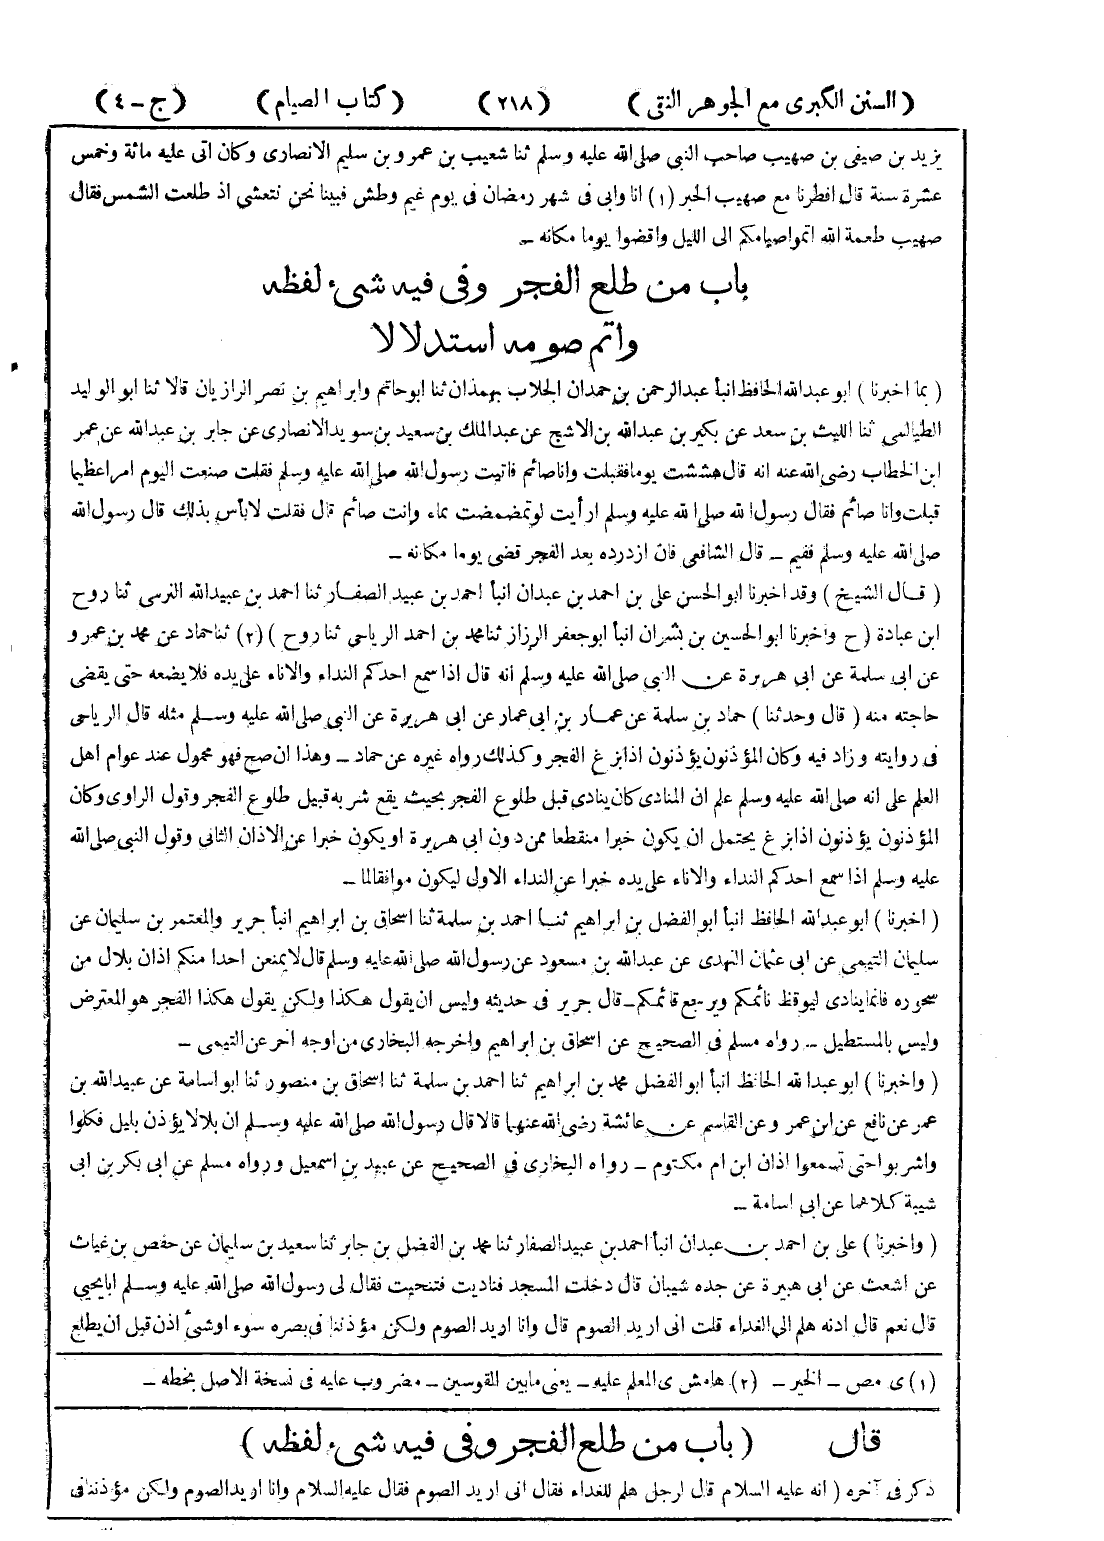 (السنن الكبرى مع الجوهر النقى) (٢١٨) (كتاب الصيام) (ج - ٤)
يزيد بن صيفى بن صهيب صاحب النبي صلى الله عليه وسلم ثنا شعيب بن عمرو بن سليم الانصارى وكان اتى عليه مائة وخمس
عشرة سنة قال افطرنا مع صهيب الحبر (١) انا وابى فى شهر رمضان فى يوم غيم وطش فبينا نحن نتعشى اذ طلعت الشمس فقال
صهيب طعمة الله اتموا صيامكم الى الليل واقضوا يوما مكانه ـ
باب من طلع الفجر وفى فيه شىء لفظه
واتم صومه استدلالا
(بما اخبرنا) ابو عبدالله الحافظ انبأ عبدالرحمن بن حمدان الجلاب بهمذان ثنا ابوحاتم وابراهيم بن نصر الرازيان قالا ثنا ابو الوليد
الطيالسى ثنا الليث بن سعد عن بكير بن عبدالله بن الاشج عن عبدالملك بن سعيد بن سويد الانصارى عن جابر بن عبدالله عن عمر
ابن الخطاب رضى الله عنه انه قال هششت يوما فقبلت وانا صائم فاتيت رسول الله صلى الله عليه وسلم فقلت صنعت اليوم امرا عظيما
قبلت وانا صائم فقال رسول الله صلى الله عليه وسلم ارأيت لو تمضمضت بماء وانت صائم قال فقلت لا بأس بذلك قال رسول الله
صلى الله عليه وسلم ففيم ـ قال الشافعى فان ازدرده بعد الفجر قضى يوما مكانه ـ
(قال الشيخ) وقد اخبرنا ابو الحسن على بن احمد بن عبدان انبأ احمد بن عبيد الصفار ثنا احمد بن عبيدالله النرسى ثنا روح
ابن عبادة (ح واخبرنا ابو الحسين بن بشران انبأ ابوجعفر الرزاز ثنا محمد بن احمد الرياحى ثنا روح) (٢) ثنا حماد عن محمد بن عمرو
عن ابى سلمة عن ابى هريرة عن النبى صلى الله عليه وسلم انه قال اذا سمع احدكم النداء والاناء على يده فلا يضعه حتى يقضى
حاجته منه (قال وحدثنا) حماد بن سلمة عن عمار بن ابى عمار عن ابى هريرة عن النبى صلى الله عليه وسلم مثله قال الرياحى
فى روايته وزاد فيه وكان المؤذنون يؤذنون اذا بزغ الفجر وكذلك رواه غيره عن حماد ـ وهذا ان صح فهو محمول عند عوام اهل
العلم على انه صلى الله عليه وسلم علم ان المنادى كان ينادى قبل طلوع الفجر بحيث يقع شربه قبيل طلوع الفجر وقول الراوى وكان
المؤذنون يؤذنون اذا بزغ يحتمل ان يكون خبرا منقطعا ممن دون ابى هريرة او يكون خبرا عن الاذان الثانى وقول النبى صلى الله
عليه وسلم اذا سمع احدكم النداء والاناء على يده خبرا عن النداء الاول ليكون موافقا لما ـ
(اخبرنا) ابو عبدالله الحافظ انبأ ابو الفضل بن ابراهيم ثنا احمد بن سلمة ثنا اسحاق بن ابراهيم انبأ جرير والمعتمر بن سليمان عن
سليمان التيمى عن ابى عثمان النهدى عن عبدالله بن مسعود عن رسول الله صلى الله عليه وسلم قال لا يمنعن احدا منكم اذان بلال من
سحوره فانما ينادى ليوقظ نائمكم ويرجع قائمكم ـ قال جرير فى حديثه وليس ان يقول هكذا ولكن يقول هكذا الفجر هو المعترض
وليس بالمستطيل ـ رواه مسلم فى الصحيح عن اسحاق بن ابراهيم واخرجه البخارى من اوجه اخر عن التيمى ـ
(واخبرنا) ابو عبدالله الحافظ انبأ ابو الفضل محمد بن ابراهيم ثنا احمد بن سلمة ثنا اسحاق بن منصور ثنا ابو اسامة عن عبيدالله بن
عمر عن نافع عن ابن عمر وعن القاسم عن عائشة رضى الله عنهما قالا قال رسول الله صلى الله عليه وسلم ان بلالا يؤذن بليل فكلوا
واشربوا حتى تسمعوا اذان ابن ام مكتوم ـ رواه البخارى فى الصحيح عن عبيد بن اسمعيل ورواه مسلم عن ابى بكر بن ابى
شيبة كلاهما عن ابى اسامة ـ
(واخبرنا) على بن احمد بن عبدان انبأ احمد بن عبيد الصفار ثنا محمد بن الفضل بن جابر ثنا سعيد بن سليمان عن حفص بن غياث
عن اشعث عن ابى هبيرة عن جده شيبان قال دخلت المسجد فناديت فتنحيت فقال لى رسول الله صلى الله عليه وسلم ابا يحيى
قال نعم قال ادنه هلم الى الغداء قلت انى اريد الصوم قال وانا اريد الصوم ولكن مؤذننا فى بصره سوء او شىء اذن قبل ان يطلع
(١) ى مص ـ الخير ـ (٢) هامش ى المعلم عليه ـ يعنى ما بين القوسين ـ مضروب عليه فى نسخة الاصل بخطه ـ
قال (باب من طلع الفجر وفى فيه شىء لفظه)
ذكر فى آخره (انه عليه السلام قال لرجل هلم للغداء فقال انى اريد الصوم فقال عليه السلام وانا اريد الصوم ولكن مؤذننا فى